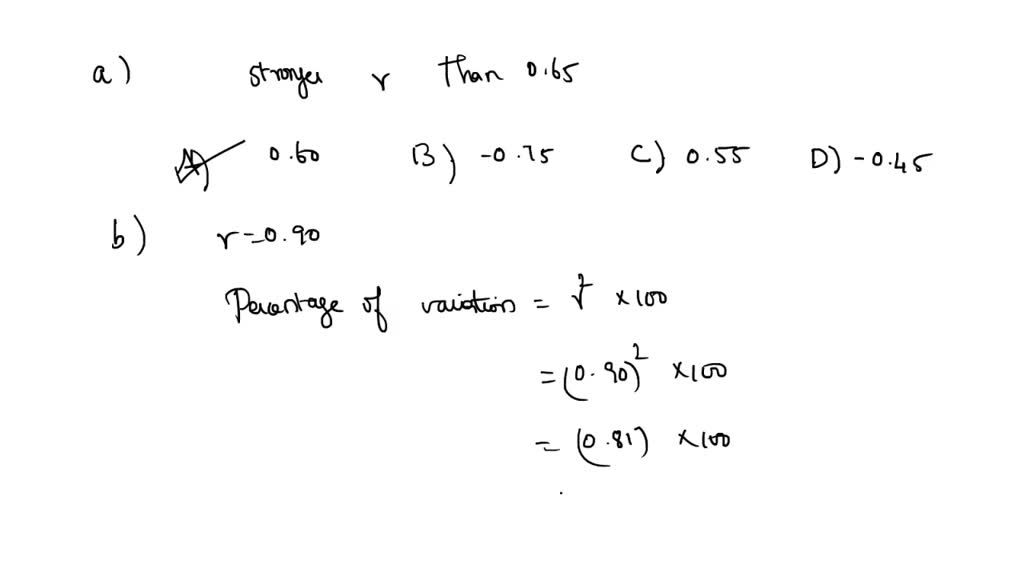 a) stronger r than 0.65
A) 0.60 B) -0.75 C) 0.55 D) -0.45
b) r=0.90
Percentage of variation = r² ×100
= (0.90)² ×100
= (0.81) ×100